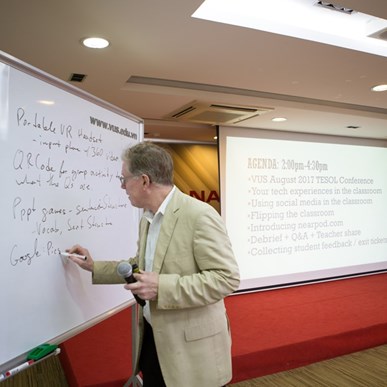 www.vus.edu.vn
Portable VR Headset
- import phone w/ 360 video
QR Code for group activity
what the QS are.
Pppt games -
- Vocab, Sent Structure
Google Pic
NA
AGENDA: 3:00pm-4:30pm
•VUS August 2017 TESOL Conference
•Your tech experiences in the classroom
•Using social media in the classroom
•Flipping the classroom
•Introducing nearpod.com
•Debrief + Q&A + Teacher share
•Collecting student feedback / exit tickets